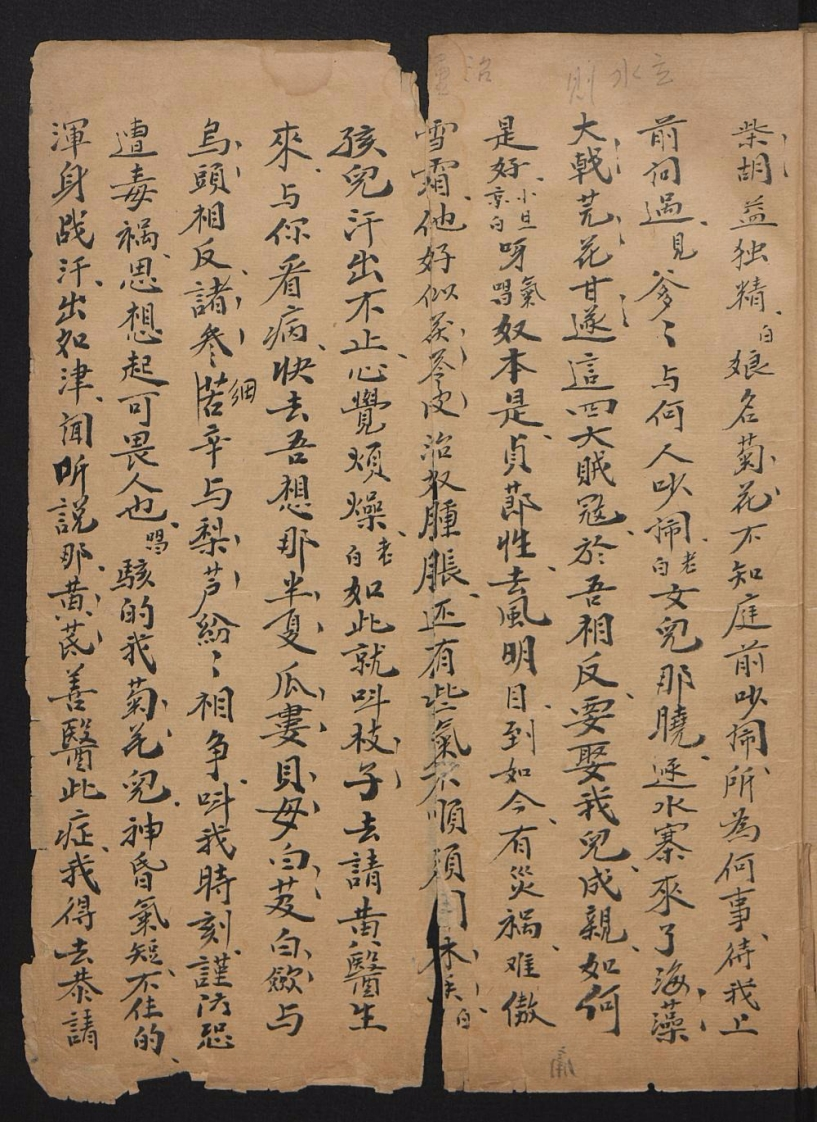 柴胡益独精白娘名菊花不知庭前吵闹所為何事待我上
前问過見爹〻与何人吵闹老白女兒那曉逆水寨來了海藻
大戟芫花甘遂這四大賊寇於吾相反要娶我兒成親如何
是好小旦哀白呀氣唱奴本是貞節性去風明目到如今有災禍难傲
雪霜他好似茯苓皮治奴腫脹还有些氣不順須用木
孩兒汗出不止心覺煩燥老白如此就呌枝子去請黄醫生
來与你看病快去吾想那半夏瓜蔞貝母白芨白歛与
烏頭相反諸參細辛与梨芦紛〻相争呌我時刻謹防恐
遭毒禍思想起可畏人也唱駭的我菊花兒神昏氣短不住的
渾身战汗出如津闻听說那黄芪善醫此症我得去恭請